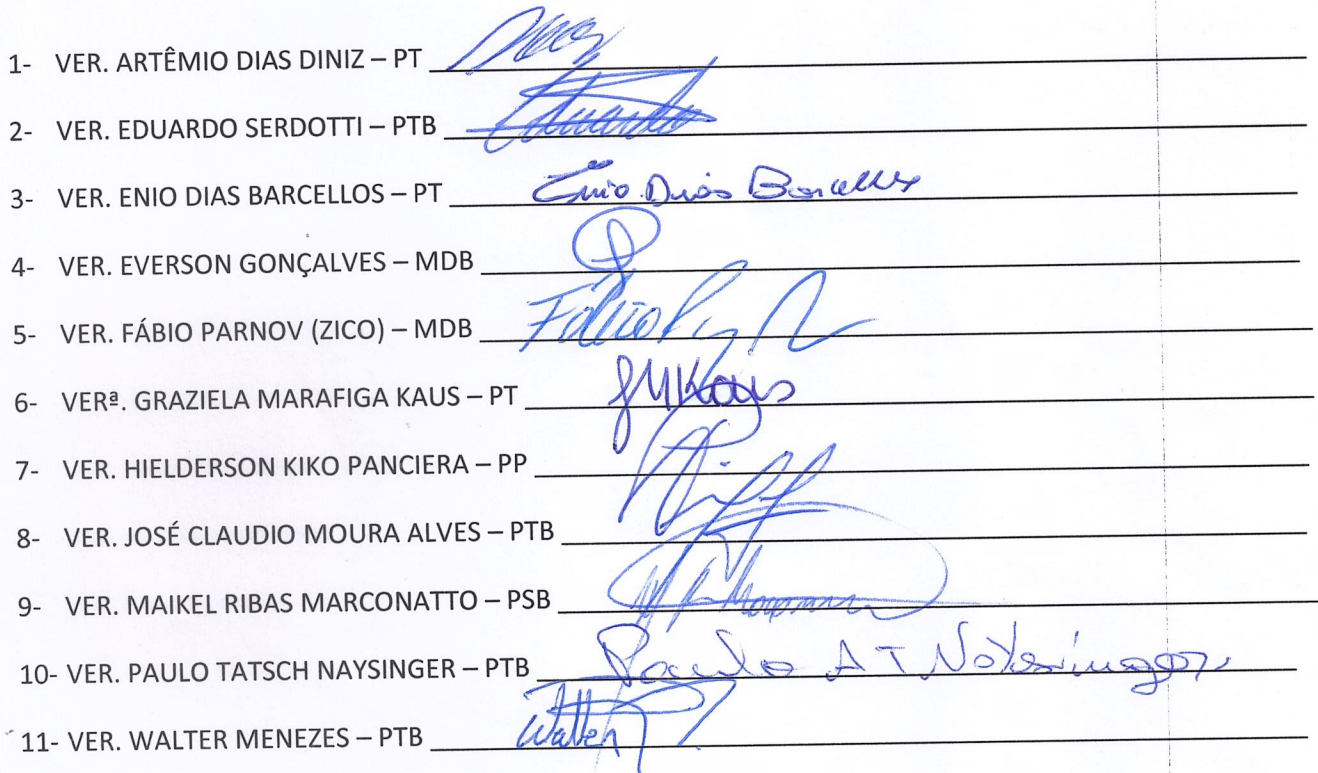 1- VER. ARTÊMIO DIAS DINIZ – PT
2- VER. EDUARDO SERDOTTI – PTB Eduardo
3- VER. ENIO DIAS BARCELLOS – PT Enio Dias Barcellos
4- VER. EVERSON GONÇALVES – MDB
5- VER. FÁBIO PARNOV (ZICO) – MDB Fábio
6- VERª. GRAZIELA MARAFIGA KAUS – PT GMKaus
7- VER. HIELDERSON KIKO PANCIERA – PP
8- VER. JOSÉ CLAUDIO MOURA ALVES – PTB
9- VER. MAIKEL RIBAS MARCONATTO – PSB
10- VER. PAULO TATSCH NAYSINGER – PTB Paulo A T Naysinger
11- VER. WALTER MENEZES – PTB Walter